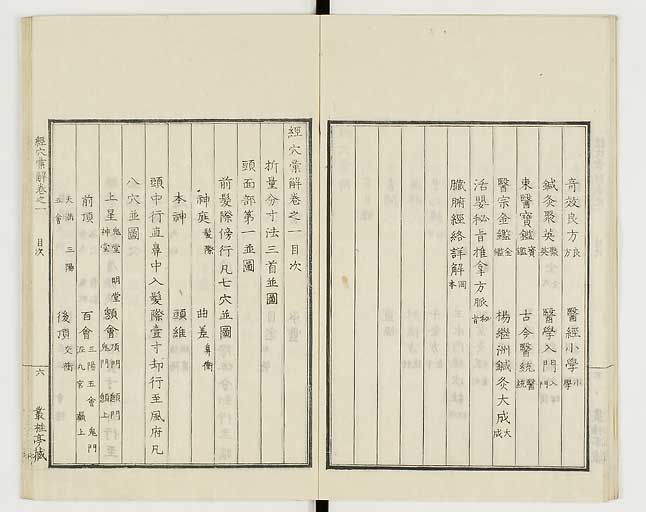 奇效良方良 醫經小學小學
鍼灸聚英聚英 醫學入門入門
東醫寶鑑寶鑑 古今醫統醫統
醫宗金鑑金鑑 楊繼洲鍼灸大成大成
活嬰秘旨推拿方脈秘旨
臟腑經絡詳解岡本
經穴彙解卷之一目次
折量分寸法三首並圖
頭面部第一並圖
前髮際傍行凡七穴並圖
神庭髮際 曲差鼻衝
本神 頭維
頭中行直鼻中入髮際壹寸却行至風府凡
八穴並圖
上星鬼堂 明堂 神堂 顖會頂門 顖門 鬼門 顖上
前頂 百會三陽五會 鬼門 泥丸宮 巔上
天滿 三陽 五會 後頂交衝
經穴彙解卷之一 目次 六 叢桂亭藏